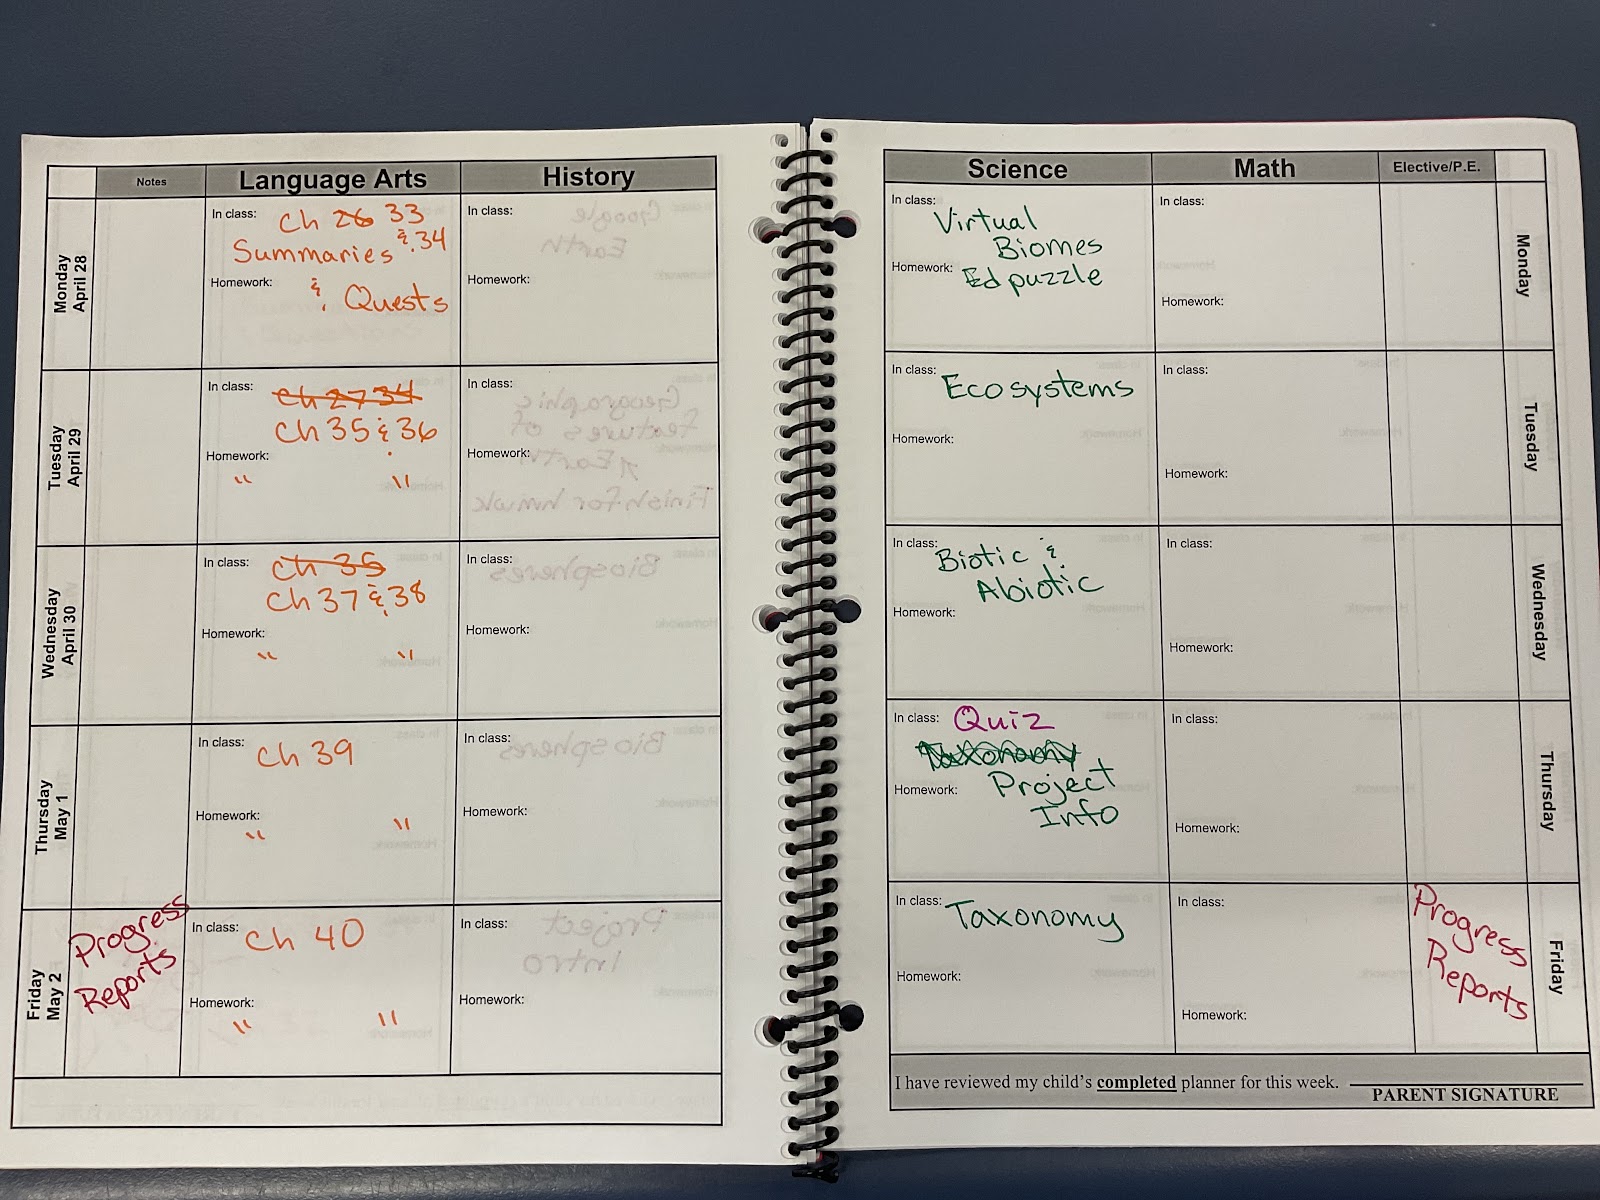 Notes Language Arts History
Monday
April 28
In class: Ch 26 33
Summaries & 34
Homework: & Quests
In class:
Homework:
Tuesday
April 29
In class: Ch 27 34
Ch 35 & 36
Homework:
" "
In class:
Homework:
Wednesday
April 30
In class: Ch 35
Ch 37 & 38
Homework:
" "
In class:
Homework:
Thursday
May 1
In class: Ch 39
Homework:
" "
In class:
Homework:
Friday
May 2
Progress
Reports
In class: Ch 40
Homework:
" "
In class:
Homework:
Science Math Elective/P.E.
In class: Virtual
Biomes
Homework: Edpuzzle
In class:
Homework:
Monday
In class: Ecosystems
Homework:
In class:
Homework:
Tuesday
In class: Biotic &
Abiotic
Homework:
In class:
Homework:
Wednesday
In class: Quiz
Taxonomy
Homework: Project
Info
In class:
Homework:
Thursday
In class: Taxonomy
Homework:
In class:
Homework:
Progress
Reports
Friday
I have reviewed my child's completed planner for this week.
PARENT SIGNATURE